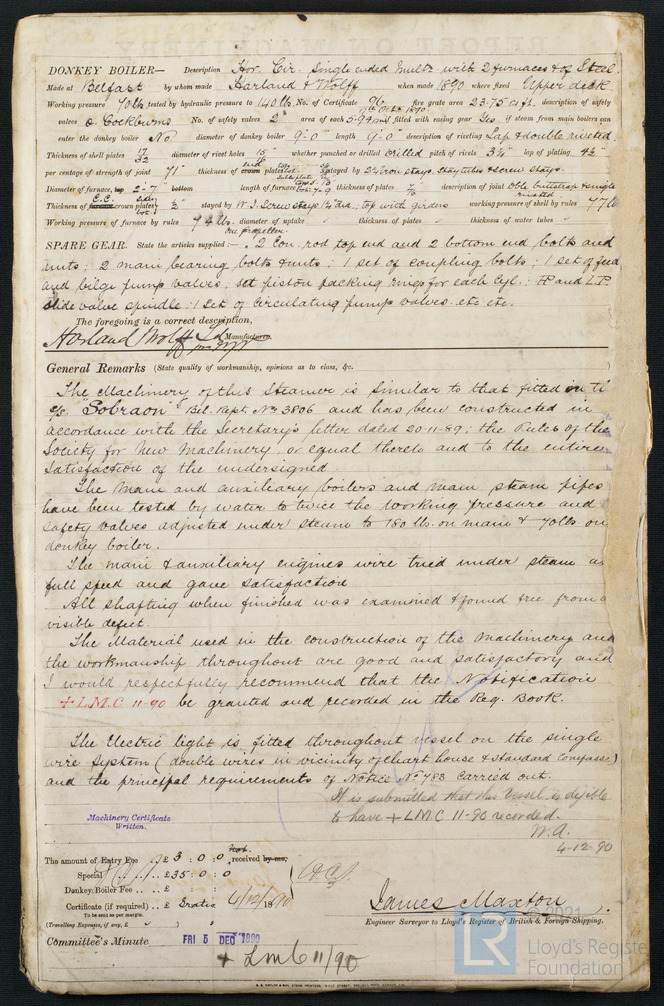 DONKEY BOILER— Description Hor. Cir. Single ended Mult. with 2 furnaces & of Steel.
Made at Belfast by whom made Harland & Wolff when made 1890 where fixed Upper deck
Working pressure 70lb tested by hydraulic pressure to 140 lb. No. of Certificate 96 fire grate area 23.75 sq ft. description of safety
valves Cockburns No. of safety valves 2 area of each 5.94 in if fitted with easing gear Yes if steam from main boilers can
enter the donkey boiler No. diameter of donkey boiler 9'-0" length 9'-0" description of riveting Lap & double riveted
Thickness of shell plates 17/32 diameter of rivet holes 15/16" whether punched or drilled drilled pitch of rivets 3¼" lap of plating 4½"
per centage of strength of joint 71% thickness of crown plates stayed by 2¼ iron stays, stay tubes & screw stays.
Diameter of furnace, top 2'-7" bottom length of furnace thickness of plates description of joint Dble. buttstrap & single riveted
Thickness of furnace crown plates ½" stayed by W.I. Screw stays 1¼ dia; top with girders working pressure of shell by rules 77lb
Working pressure of furnace by rules 94 lb. diameter of uptake " thickness of plates " thickness of water tubes "
One propeller.
SPARE GEAR. State the articles supplied:— 2 Con. rod top end and 2 bottom end bolts and
nuts; 2 main bearing bolts & nuts; 1 set of coupling bolts; 1 set of feed
and bilge pump valves; set piston packing rings for each Cyl.; HP and L.P.
slide valve spindle; 1 set of Circulating pump valves. etc etc.
The foregoing is a correct description,
Harland Wolff Ld Manufacturer.
General Remarks (State quality of workmanship, opinions as to class, &c.
The Machinery of this Steamer is similar to that fitted in the
S/S. "Sobraon" Bel. Rept. No 3806 and has been constructed in
accordance with the Secretary's letter dated 20-11-89; the Rules of the
Society for New Machinery, or equal thereto and to the entire
satisfaction of the undersigned.
The Main and auxiliary boilers and main steam pipes
have been tested by water to twice the working pressure and
safety valves adjusted under steam to 180 lbs. on main & 70lbs on
donkey boiler.
The main & auxiliary engines were tried under steam as
full speed and gave satisfaction
All shafting when finished was examined & found free from a
visible defect.
The Material used in the construction of the machinery and
the workmanship throughout are good and satisfactory and
I would respectfully recommend that the Notification
+ L.M.C 11-90 be granted and recorded in the Reg. Book.
The Electric light is fitted throughout vessel on the single
wire system (double wires in vicinity of chart house & standard Compasses)
and the principal requirements of Notice No 783 carried out.
It is submitted that this Vessel is eligible
to have + L.M.C 11-90 recorded.
W.A.
4-12-90
Machinery Certificate
Written.
The amount of Entry Fee £ 3 : 0 : 0 received by me,
Special £ 35 : 0 : 0
Donkey Boiler Fee .. .. £ : :
Certificate (if required) .. £ Gratis 4/12/1890
To be sent as per margin.
(Travelling Expenses, if any, £ )
James Maxton
Engineer Surveyor to Lloyd's Register of British & Foreign Shipping.
Committee's Minute FRI 5 DEC 1890
+ Lmc 11/90
2021
LR
Lloyd's Registe
Foundation